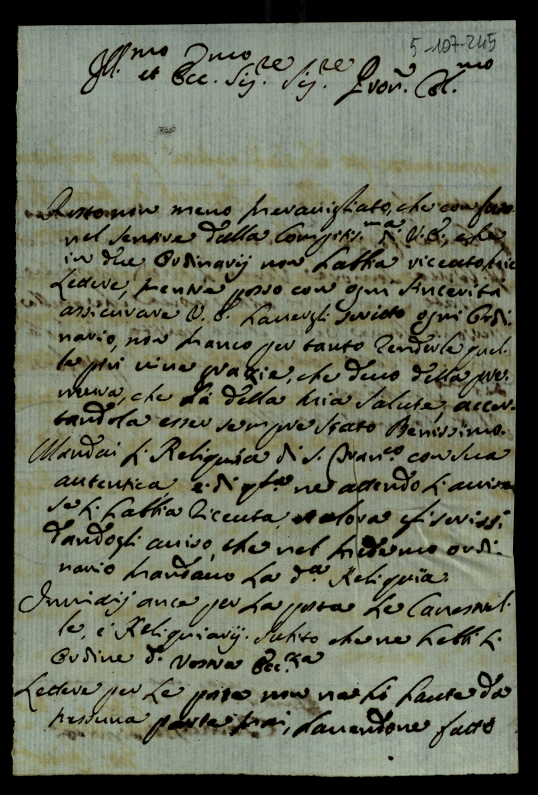 5-107-245
Ill.mo et Ecc. Sig.re Sig.re Pron. Col.mo
Resto non meno meravigliato, che confuso
nel sentire dalla Compitis.ma di V. E., che
in due Ordinarij non habbia riceuto mie
Lettere, mentre posso con ogni sincerità
assicurare V. E. hauergli scritto ogni Ordi-
nario, non manco per tanto renderle quel-
le più viue grazie, che deuo della pre-
mura, che hà della mia salute, accer-
tandola esser sempre stato Benissimo.
Mandai la Reliquia di S. Fran.co con sua
autentica e di q.ta ne attendo l'auiso
se l'habbia riceuta, allora gli scrissi
dandogli auiso, che nel medemo ordi-
nario mandauo la d.a Reliquia.
Inuiai anco per la posta le
le, e Reliquiarij subito che ne hebbi l'
Ordine di Vostra Ecc.za
Lettere per le poste non ne hò haute da
nessuna parte mai, hauendone fatto